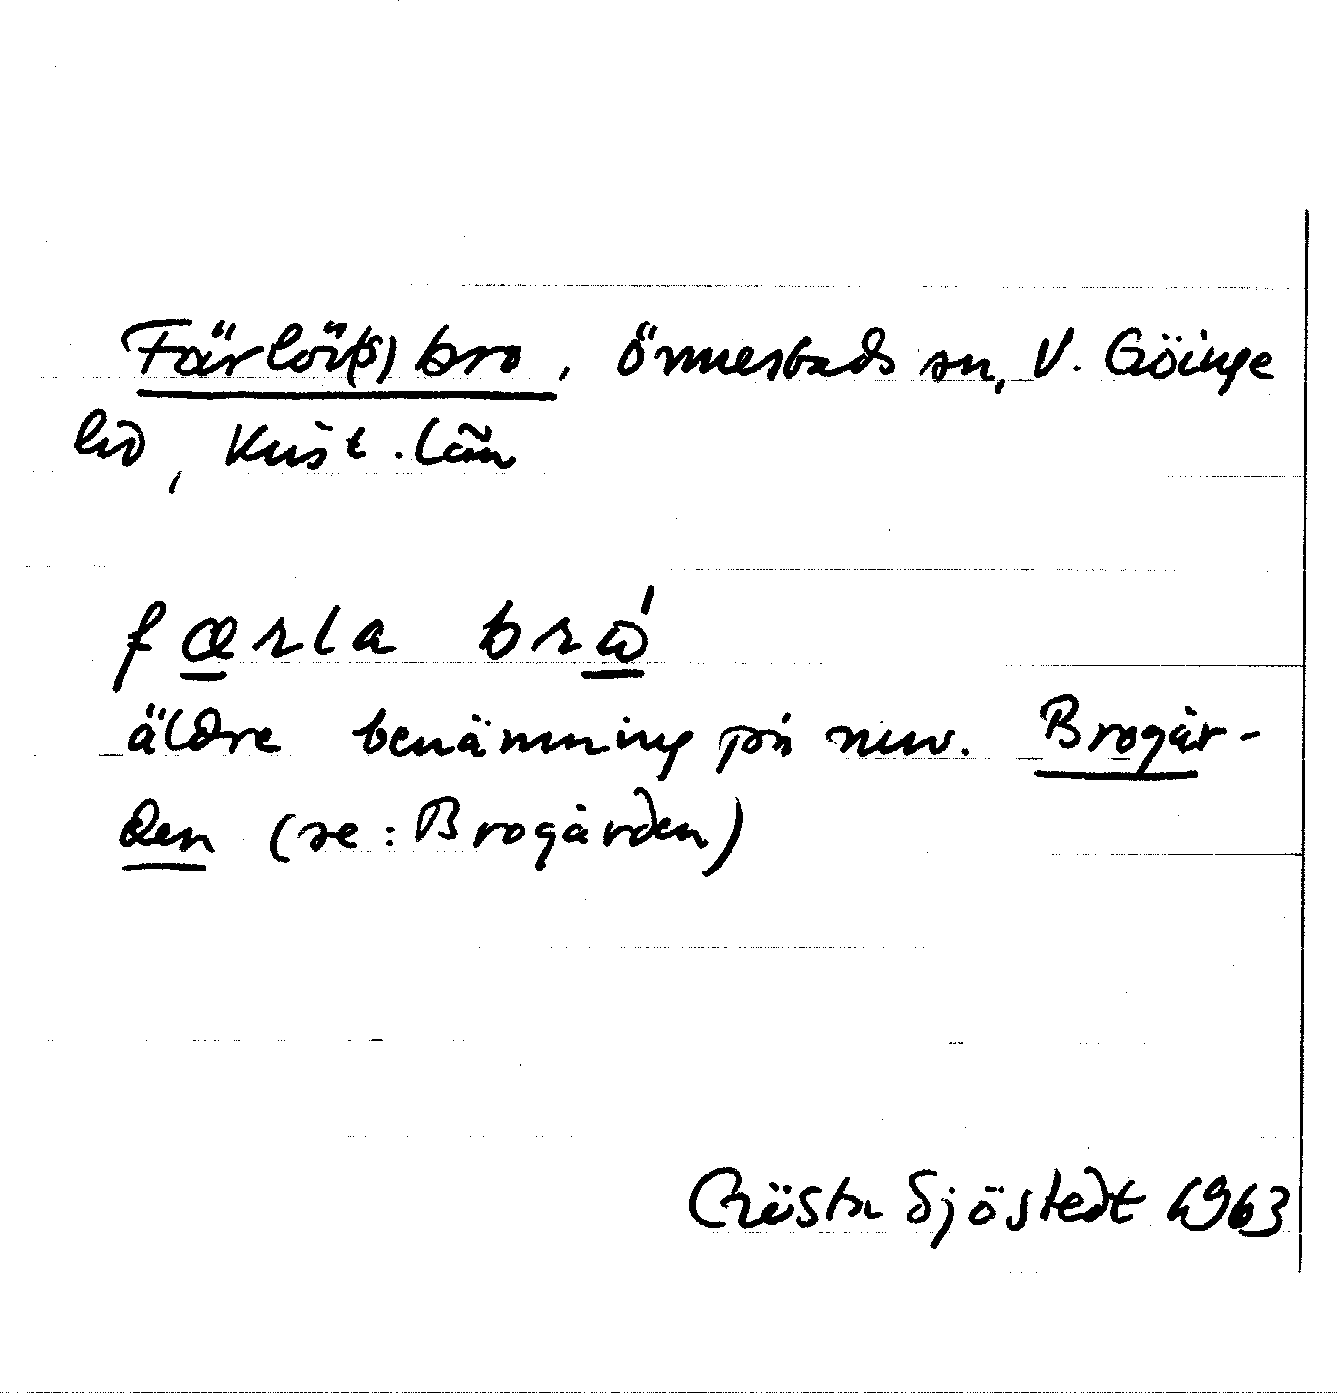 Färlöv(s) bro, Önnestads sn, V. Göinge
hd, Krist. län
færla brω´
äldre benämning på nuv. Brogår-
den (se: Brogården)
Gösta Sjöstedt 1963